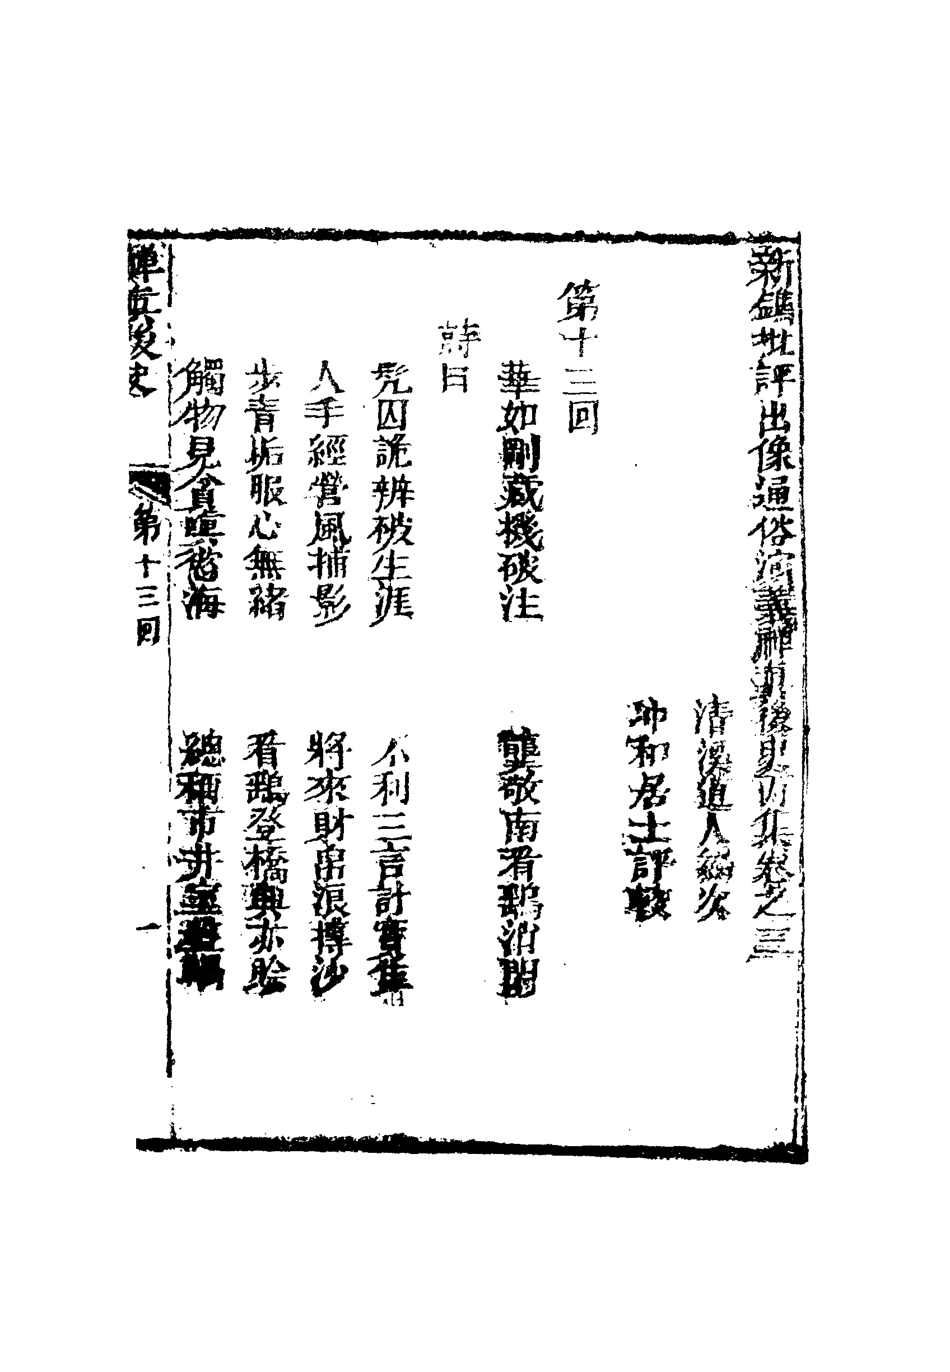 新鐫批評出像通俗演義禪真後史丙集卷之三
清溪道人編次
冲和居士評較
第十三回
華如剛藏機破法　龔敬南看鵝消閒
詩曰
髡囚詭辨破生涯　不利三言計賣佳
人手經營風捕影　將來財帛浪摶沙
步青垢服心無緒　看鵝登橋興亦賒
觸物見貪嗔慾海　總稱市井
禪真後史　第十三回　一